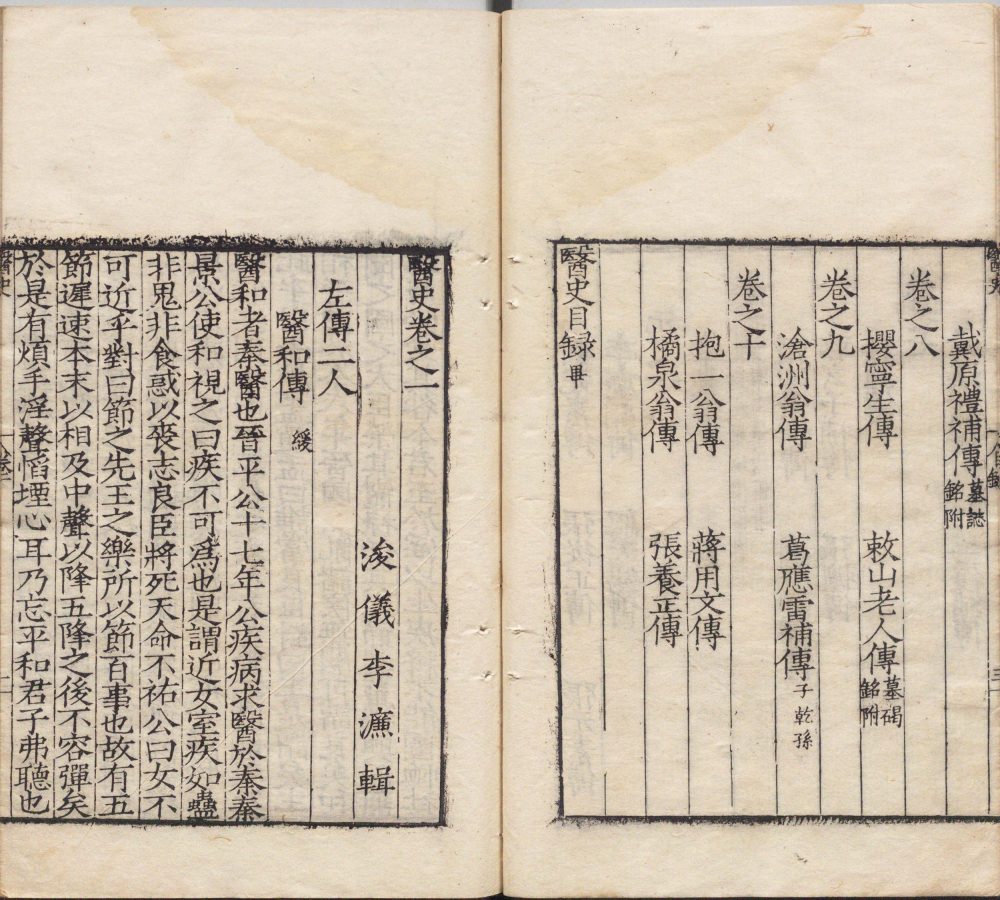 戴原禮補傳 墓誌銘附
卷之八
攖寧生傳 敕山老人傳 墓碣銘附
卷之九
滄洲翁傳 葛應雷補傳 子乾孫
卷之十
抱一翁傳 蔣用文傳
橘泉翁傳 張養正傳
醫史目錄畢
醫史卷之一
浚儀李濂輯
左傳二人
醫和傳 緩
醫和者秦醫也晉平公十七年公疾病求醫於秦秦
景公使和視之曰疾不可爲也是謂近女室疾如蠱
非鬼非食惑以喪志良臣將死天命不祐公曰女不
可近乎對曰節之先王之樂所以節百事也故有五
節遲速本末以相及中聲以降五降之後不容彈矣
於是有煩手淫聲慆堙心耳乃忘平和君子弗聽也